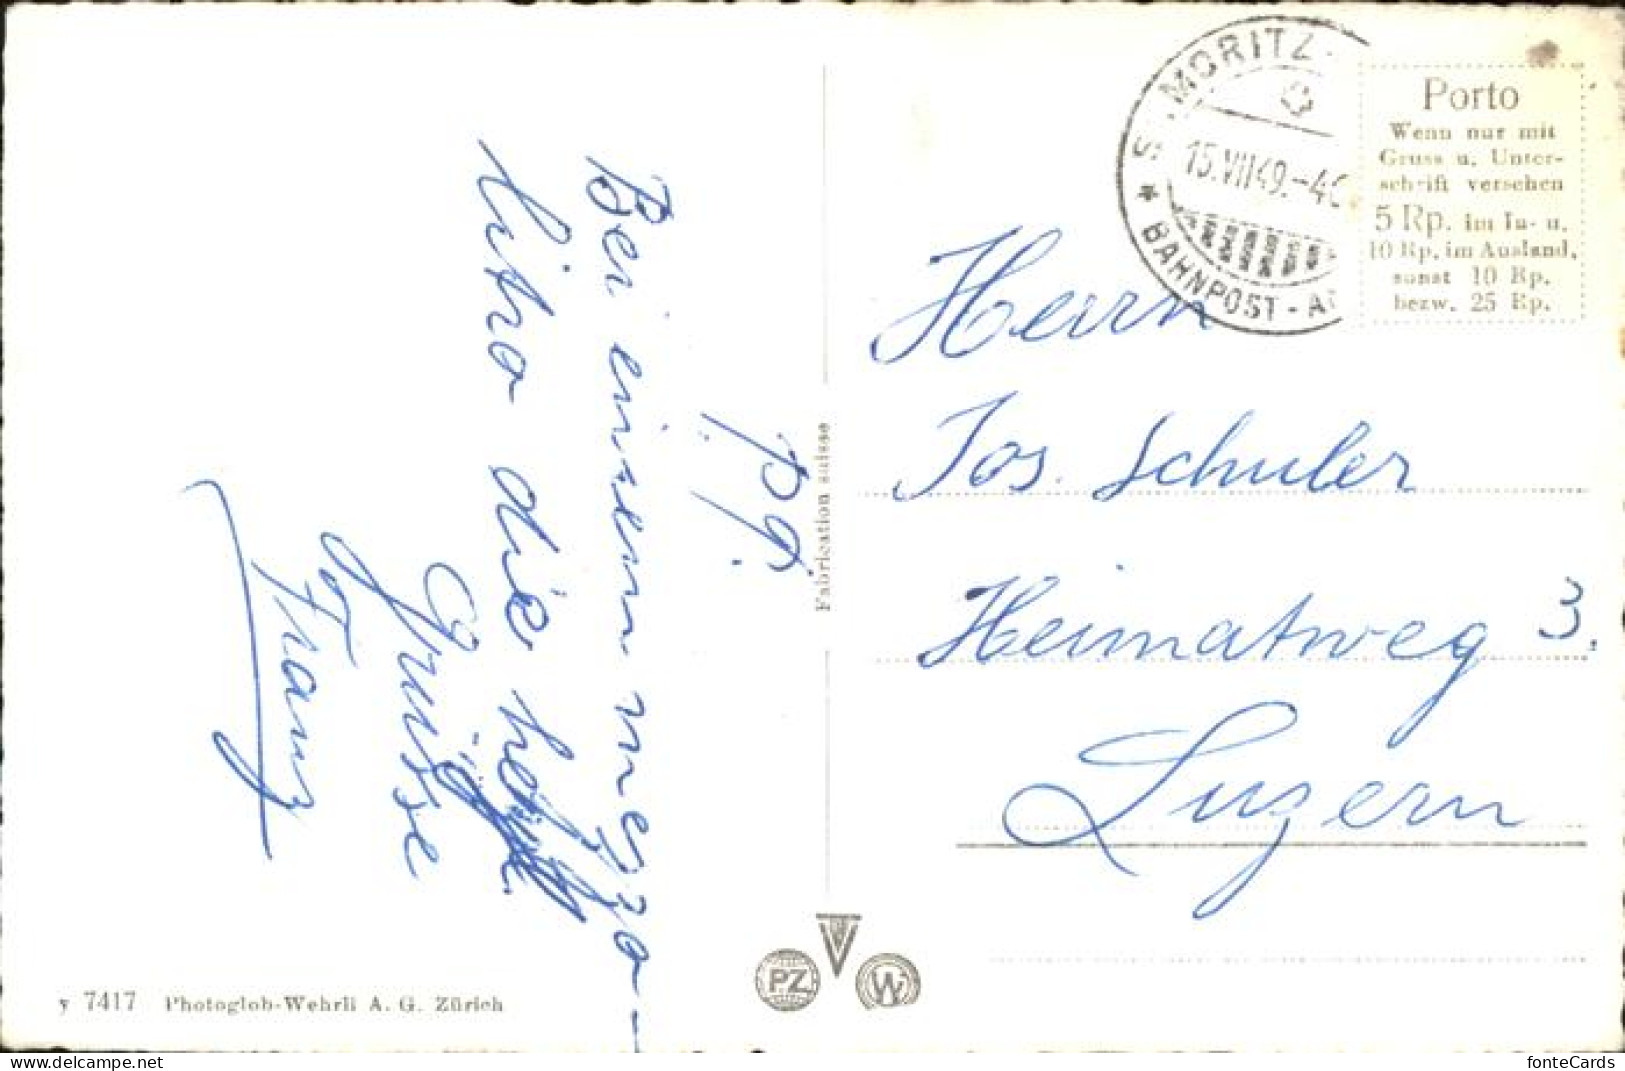 P. P.
Bei einem mezzo-
litro die
Grüsse
Franz
Fabrication suisse
y 7417 Photoglob-Wehrli A. G. Zürich
PZ
V
W
ST. MORITZ
15.VII 49.-4
* BAHNPOST-A
Porto
Wenn nur mit
Gruss u. Unter-
schrift versehen
5 Rp. im In- u.
10 Rp. im Ausland,
sonst 10 Rp.
bezw. 25 Rp.
Herrn
Jos. Schuler
Heimatweg 3.
Luzern
fonteCards
https://www.delcampe.net